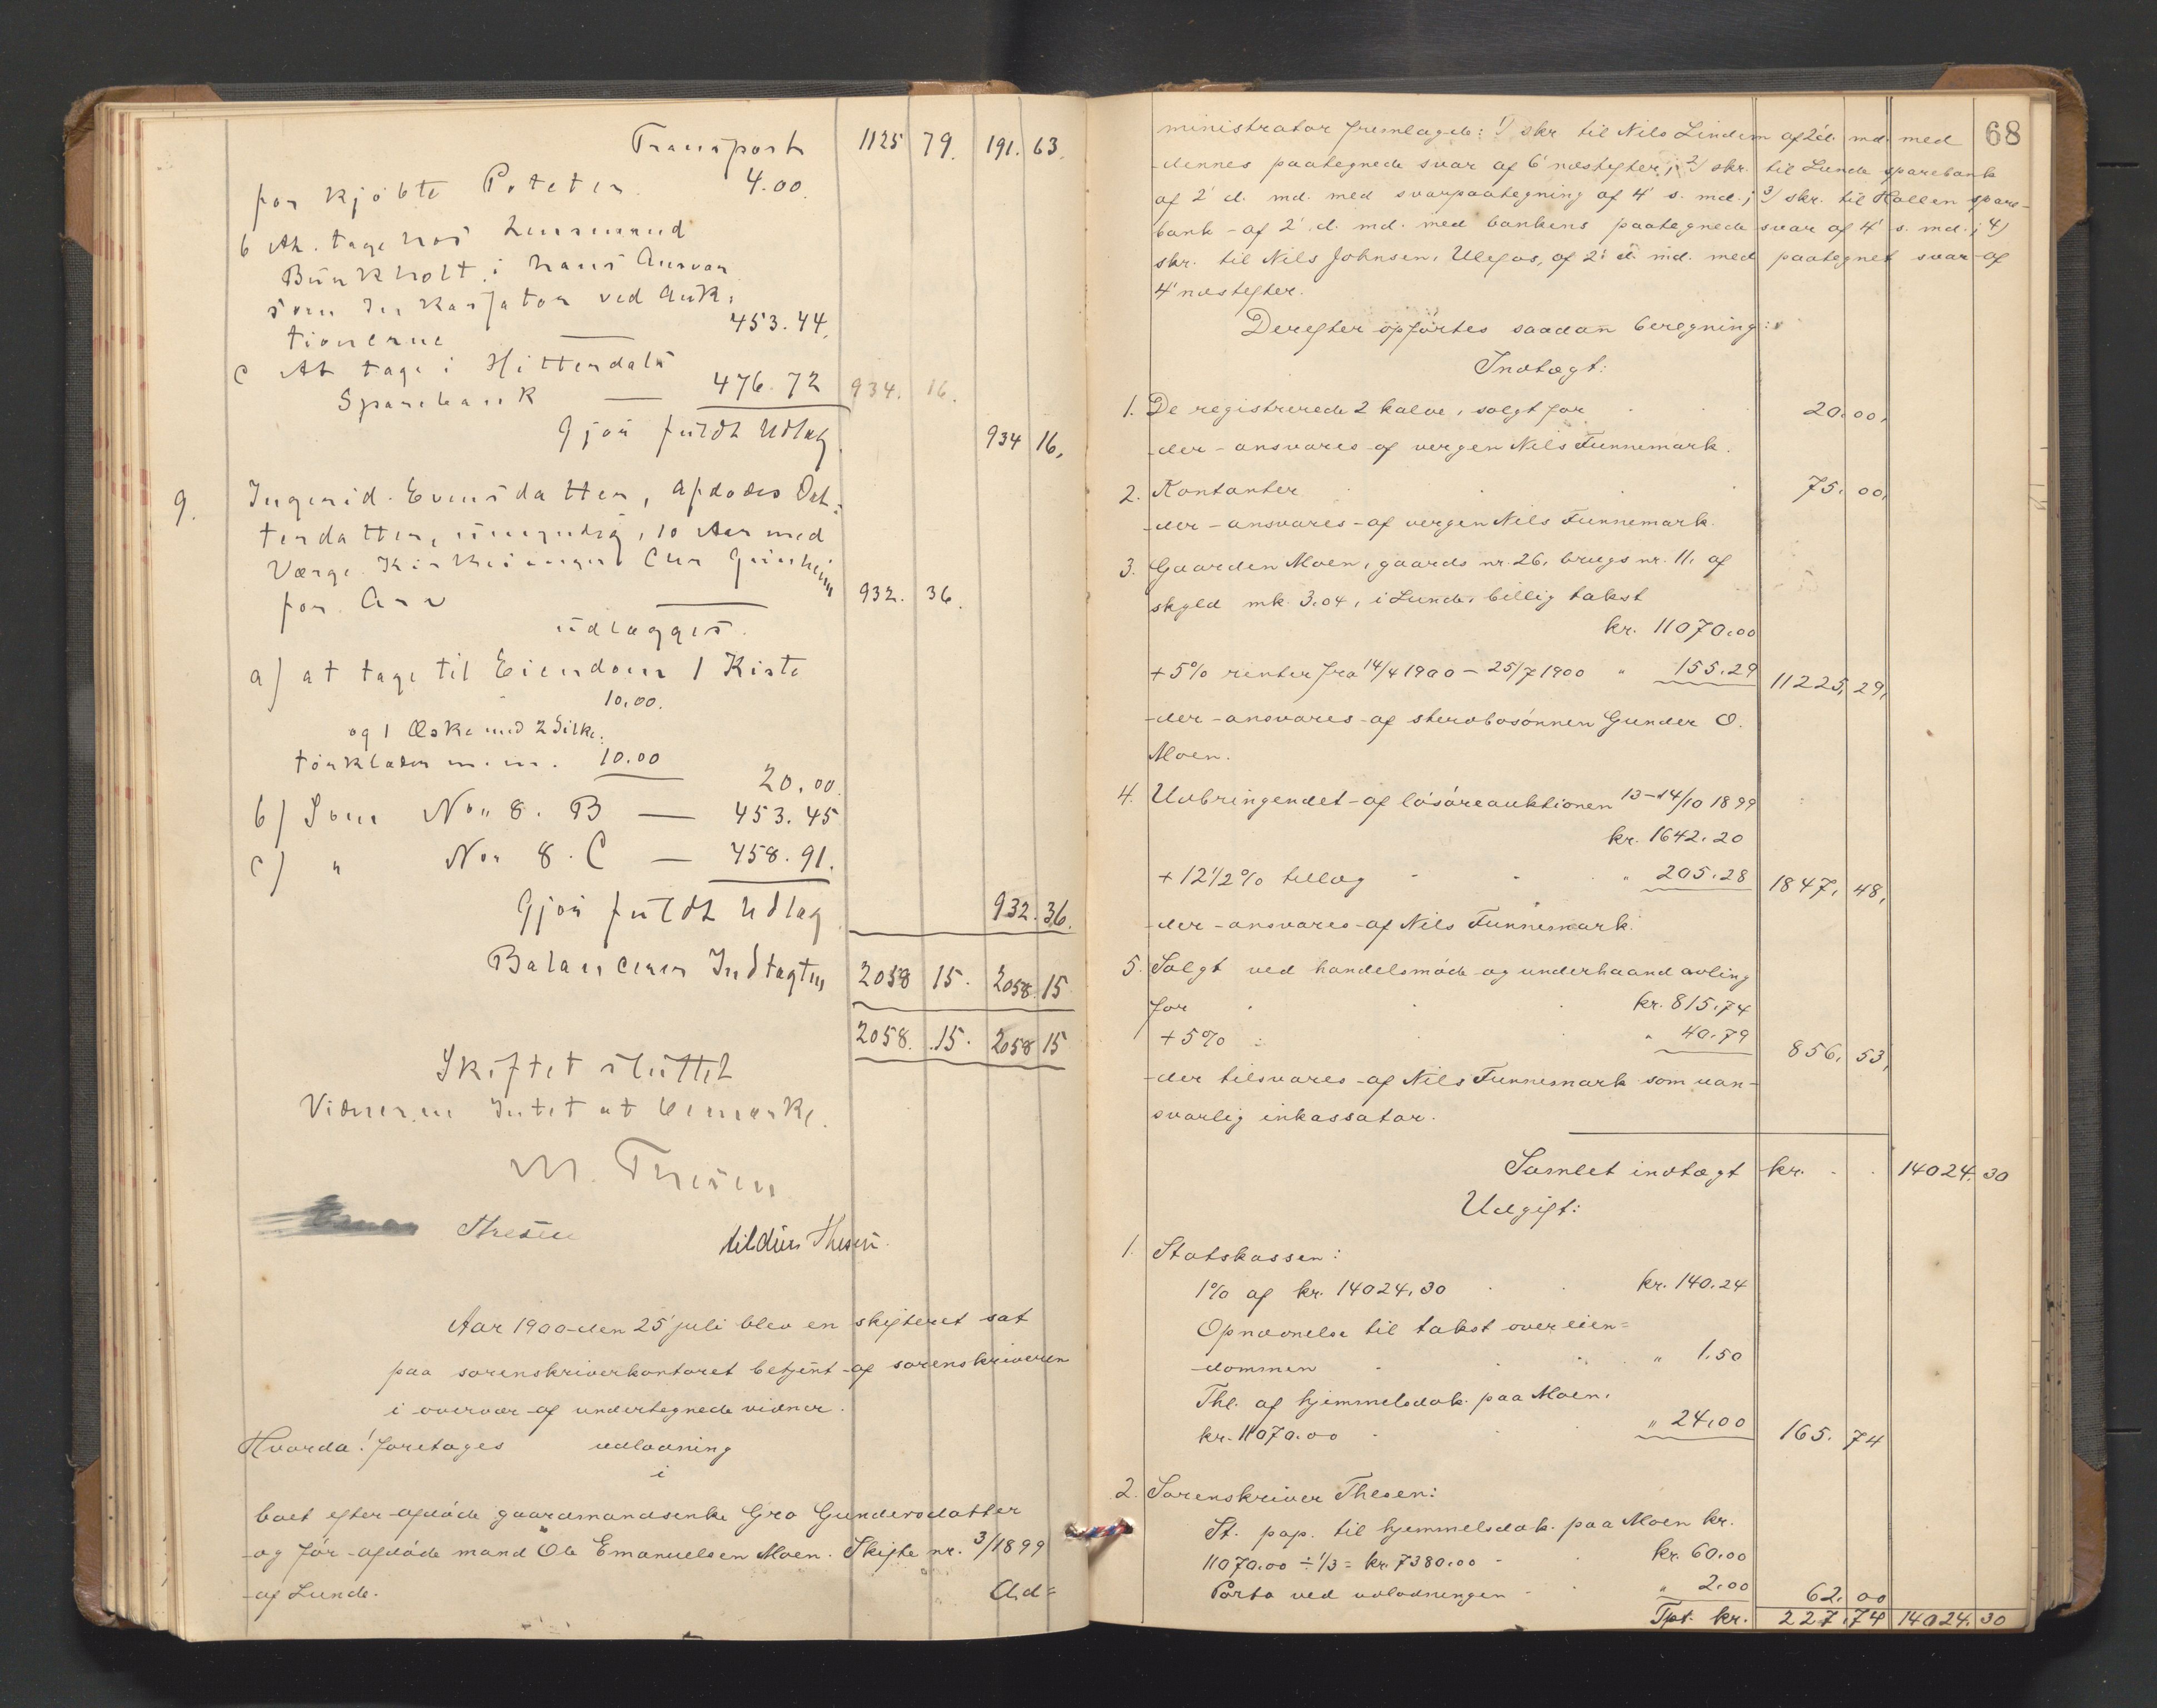 Transport 1125 79. 191. 63.
for kjöbte Poteter 4.00.
b At tage hos Lensmand
Bünkholt i hans Ansvar
som Inkassator ved Auk:
tionerne — 453.44.
c At tage i Hitterdals
Sparebank — 476.72 934. 16.
Gjør füldt Udlæg 934 16.
9. Ingerid Evensdatter, afdødes Dat:
terdatter, ümyndig, 10 Aar med
Værge Kirkesanger Chr Grinheim
for Arv — 932. 36.
üdlægges
a) at tage til Eiendom 1 Kiste
10.00.
og 1 Æske med 2 Silke:
törklæder m. m. 10.00
20.00.
b) Som No 8. B — 453.45
c) " No 8. C — 458.91.
Gjør füldt Udlæg 932. 36.
Balancerer Indtægten 2058 15. 2058. 15
2058. 15. 2058 15
Skiftet slüttet
Vidnerne Intet at bemærke.
M. Thesen
Thesen tildüs Thesen.
Aar 1900 den 25' juli blev en skifteret sat
paa sorenskriverkontoret betjent af sorenskriveren
i overvær af undertegnede vidner.
Hvorda! foretoges udlodning
i
boet efter afdöde gaardmandsenke Gro Gundersdatter
og för afdöde mand Ole Emanuelsen Moen. Skifte nr. 3/1899
af Lunde. Ad=
68
ministrator fremlagde: 1) skr til Nils Lindem af 2' d. md. med
dennes paategnede svar af 6' næstefter; 2) skr. til Lunde sparebank
af 2' d. md. med svarpaategning af 4' s. md.; 3) skr. til Hollen spare-
bank af 2' d. md. med bankens paategnede svar af 4' s. md.; 4)
skr. til Nils Johnsen, Ulefos, af 2' d. md. med paategnet svar af
4' næstefter.
Derefter opförtes saadan beregning:
Indtægt:
1. De registrerede 2 kalve, solgt for 20.00.
der ansvares af vergen Nils Funnemark.
2. Kontanter 75. 00.
der ansvares af vergen Nils Funnemark.
3. Gaarden Moen, gaards nr. 26, brugs nr. 11, af
skyld mk. 3.04, i Lunde, billig takst
kr. 11070.00
+ 5% renter fra 14/4 1900 – 25/7 1900 " 155.29 11225, 29,
der ansvares af stervbosönnen Gunder O.
Moen.
4. Udbringendet af lösöreauktionen 13–14/10 1899
kr. 1642.20
+ 12 1/2% tillæg " 205.28 1847, 48,
der ansvares af Nils Funnemark.
5. Solgt ved handelsmöde og underhaand avling
for kr. 815.74
+ 5% " 40.79 856. 53,
der tilsvares af Nils Funnemark som uan-
svarlig inkassator.
Samlet indtægt kr. 14024. 30
Udgift:
1. Statskassen:
1% af kr. 14024.30 kr. 140.24
Opnævnelse til takst over eien=
dommen " 1.50
Thl. af hjemmelsdok. paa Moen,
kr. 11070.00 " 24.00 165. 74
2. Sorenskriver Thesen:
St. pap. til hjemmelsdok. paa Moen kr.
11070.00 ÷ 1/3 = kr. 7380.00 kr. 60.00
Porto ved udlodningen " 2.00 62. 00
Tpt. kr. 227. 74 14024. 30